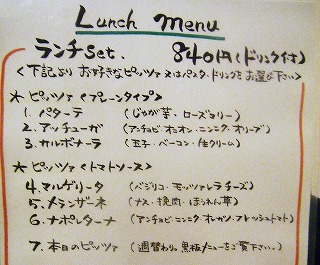 Lunch menu
ランチset. 840円(ドリンク付)
<下記より お好きなピッツァ 又はパスタ・ドリンクをお選び下さい>
★ ピッツァ <プレーンタイプ>
1. パターテ (じゃが芋・ローズマリー)
2. アッチューガ (アンチョビ・オニオン・ニンニク・オリーブ)
3. カルボナーラ (玉子・ベーコン・生クリーム)
★ ピッツァ <トマトソース>
4. マルゲリータ (バジリコ・モッツァレラチーズ)
5. メランザーネ (ナス・挽肉・ほうれん草)
6. ナポレターナ (アンチョビ・ニンニク・オレガノ・フレッシュトマト)
7. 本日のピッツァ (週替わり。黒板メニューをご覧下さい。)